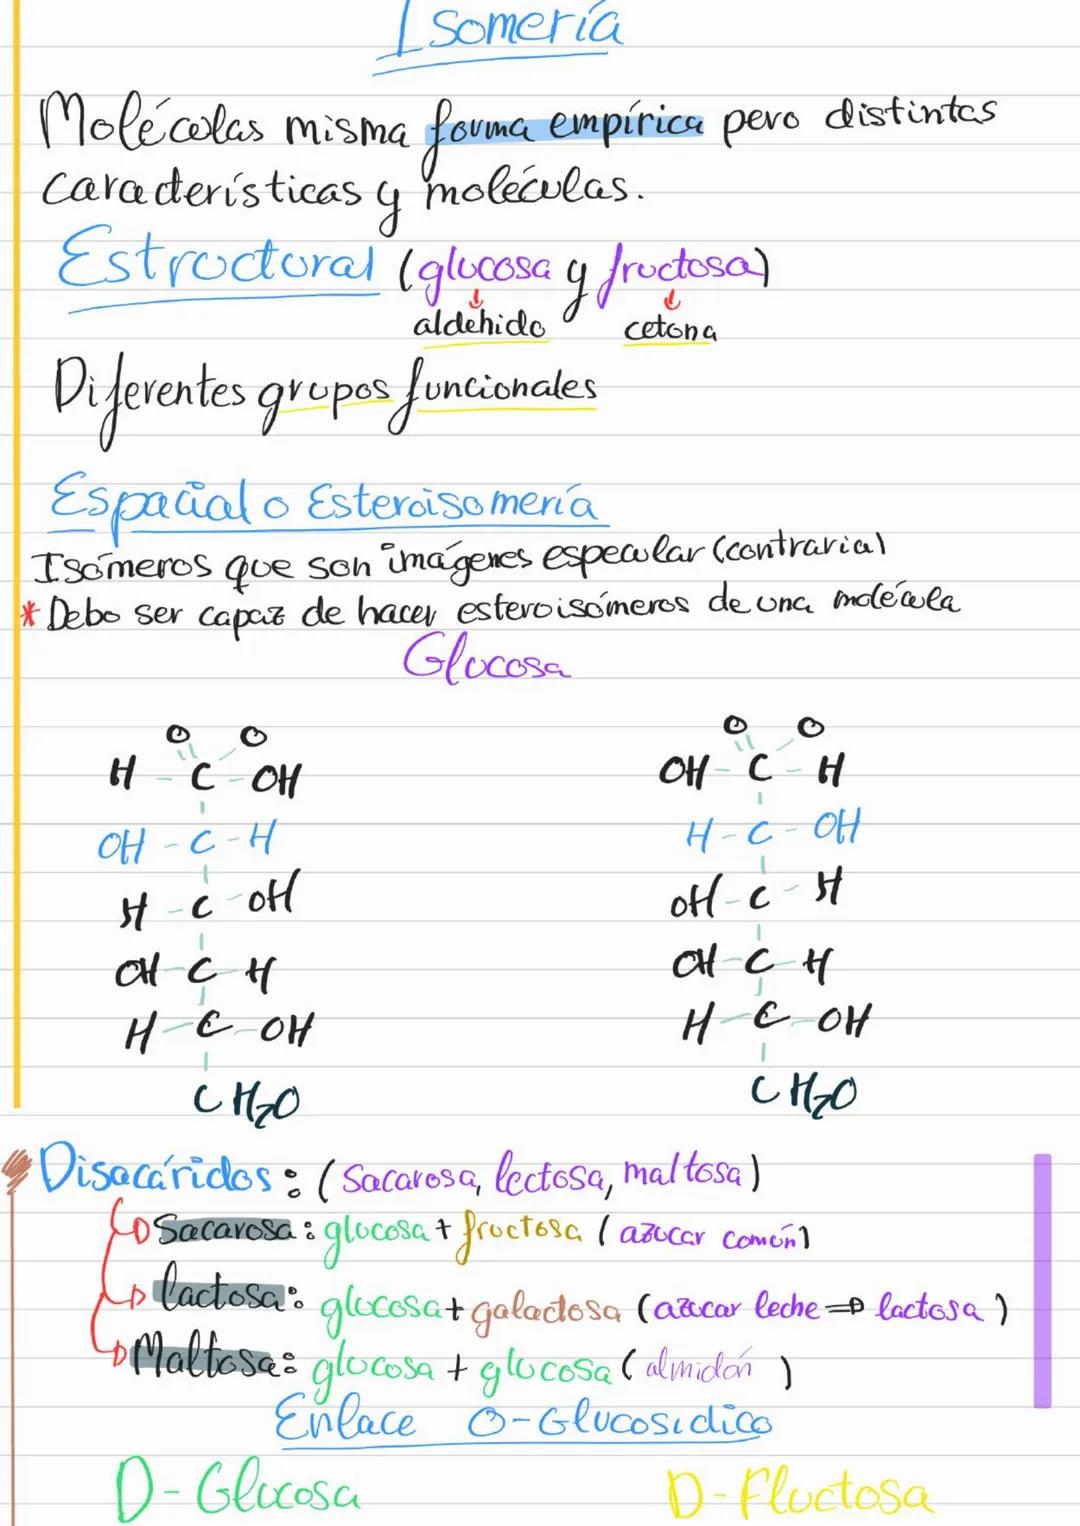 Isomería
Molécolas misma forma empírica pero distintas
características y moléculas.
Estructural (glucosa y fructosa)
aldehido cetona
Diferentes grupos funcionales
Espacial o Esteroisomería
Isómeros que son imágenes especular (contraria)
* Debo ser capaz de hacer esteroisómeros de una molécula
Glucosa
O O O O
H - C - OH OH - C - H
OH - C - H H - C - OH
H - C - OH OH - C - H
OH - C - H OH - C - H
H - C - OH H - C - OH
CH2O CH2O
Disacáridos: (Sacarosa, lectosa, maltosa)
Sacarosa: glucosa + fructosa (azúcar común)
lactosa: glucosa + galactosa (azucar leche => lactosa)
Maltosa: glucosa + glucosa (almidón)
Enlace O-Glucosidico
D-Glucosa D-Fluctosa